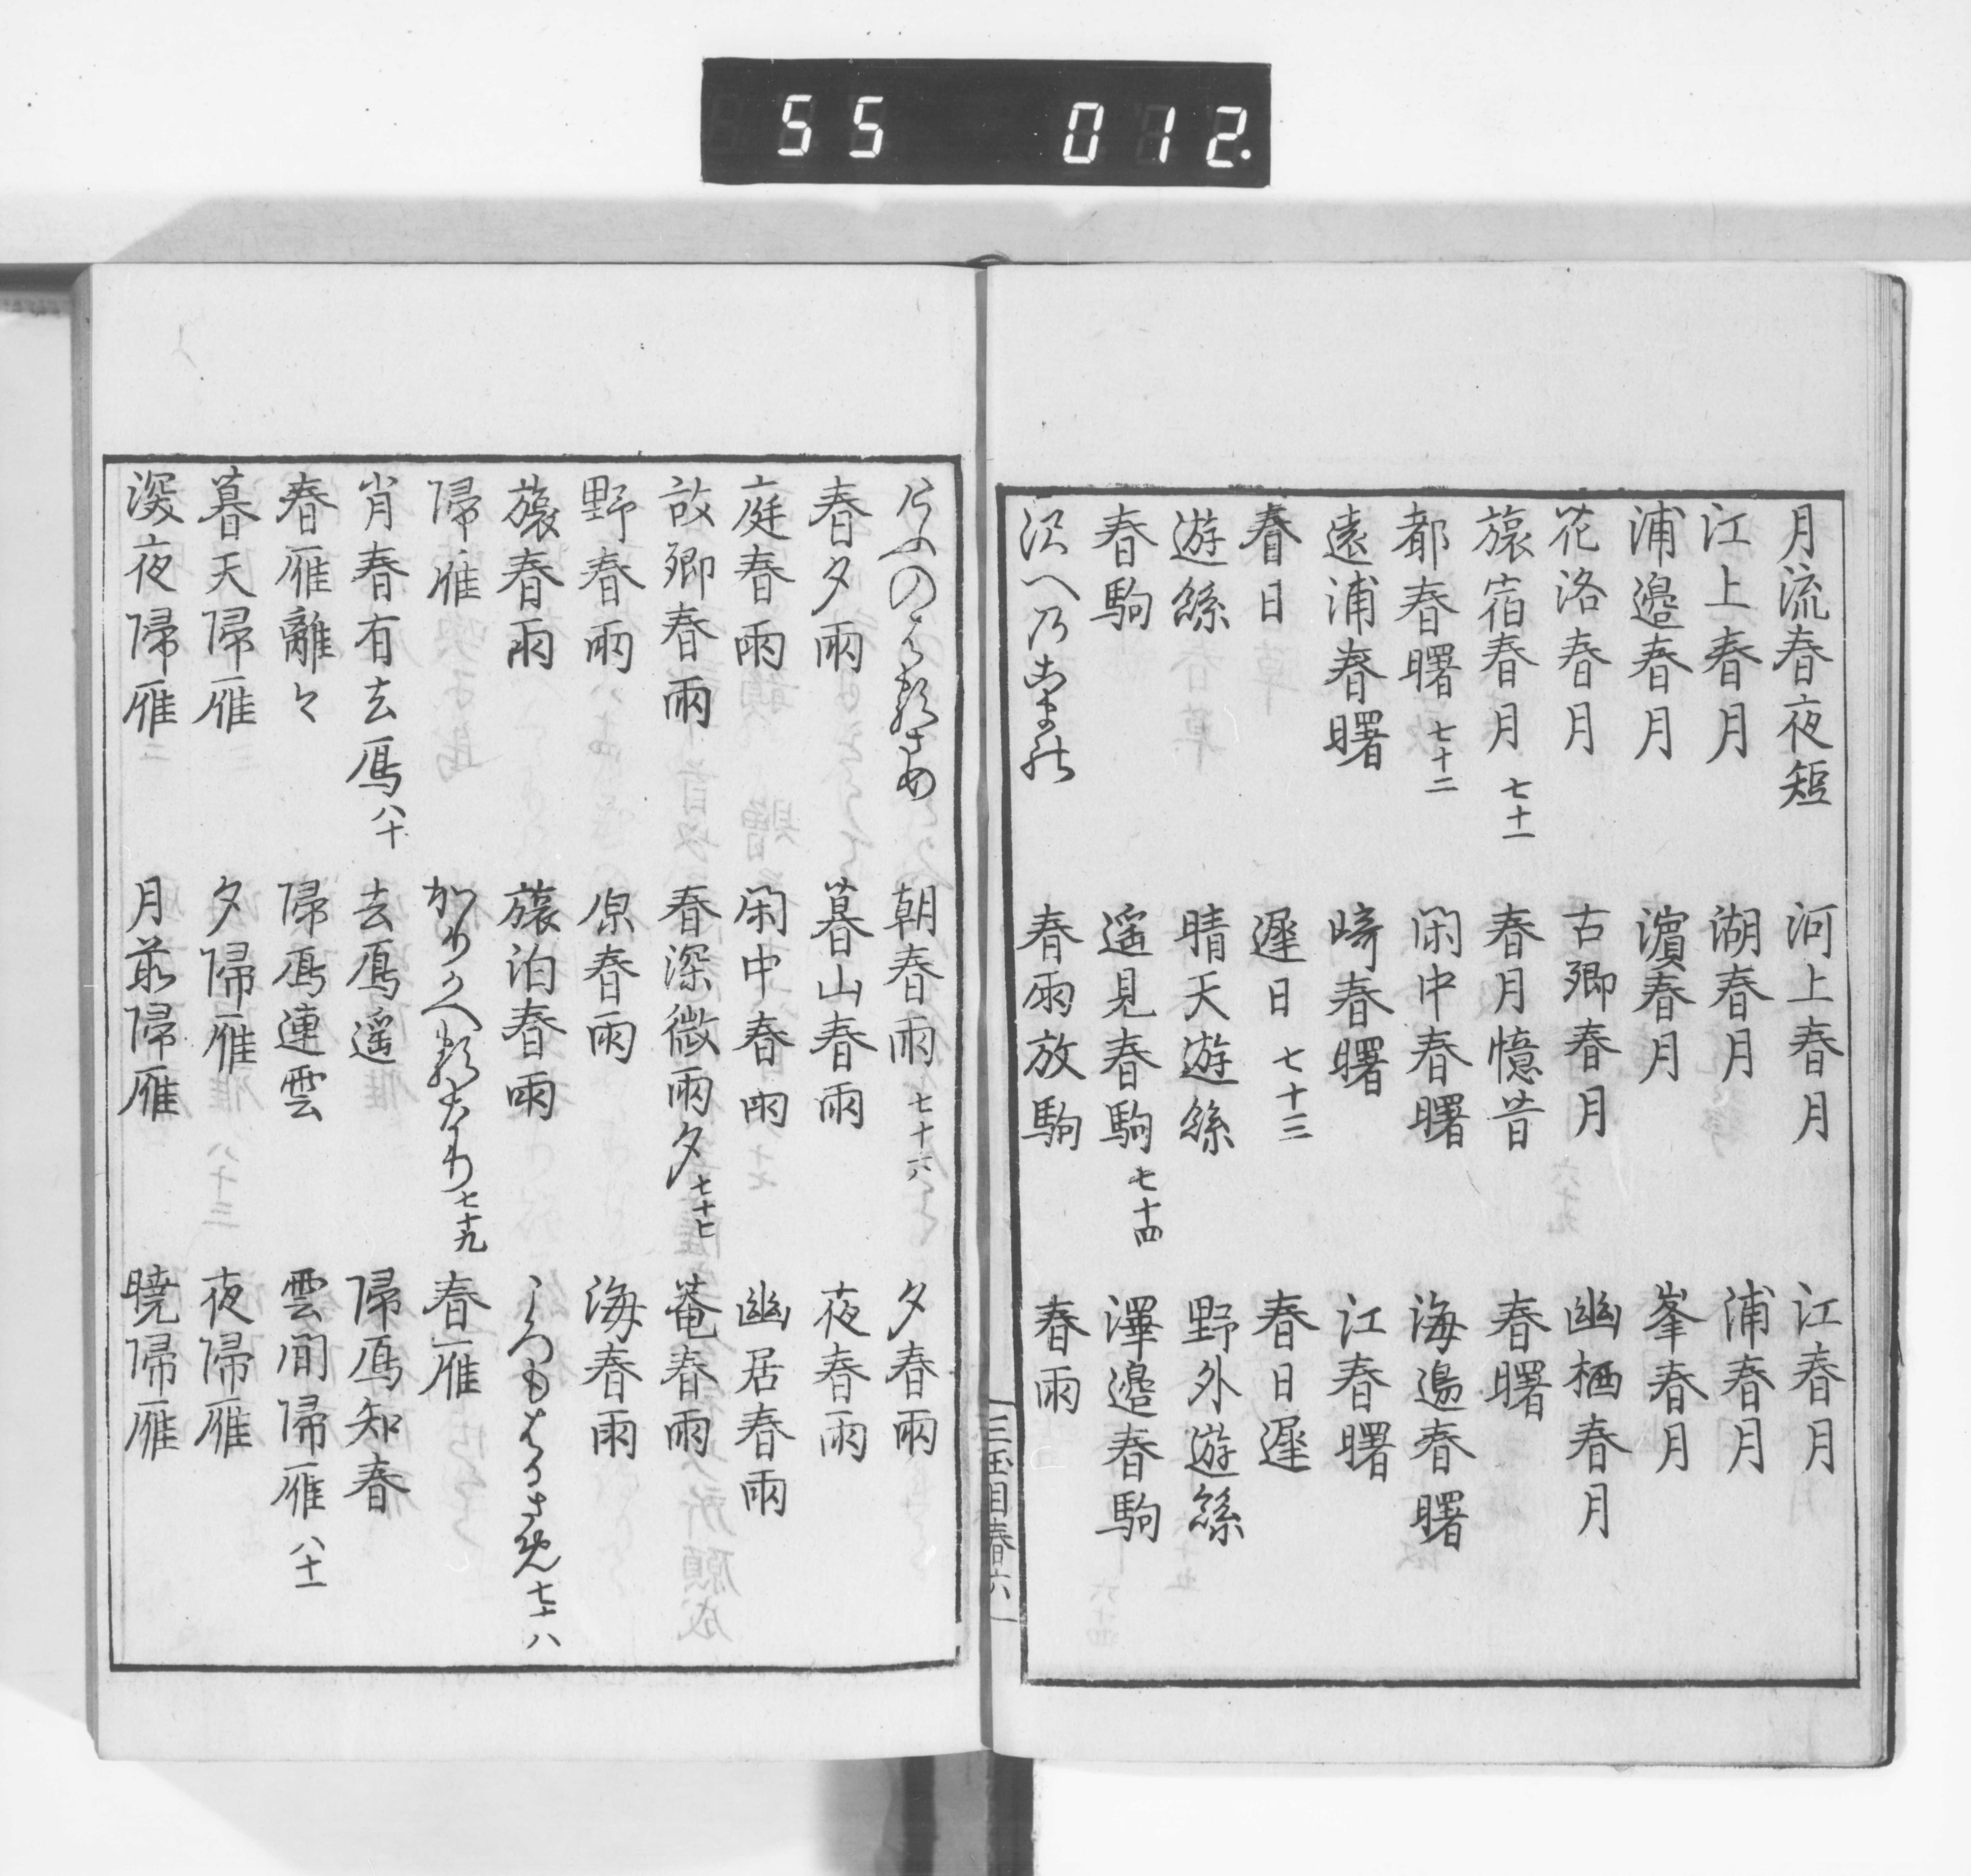 55 012.
月流春夜短 河上春月 江春月
江上春月 湖春月 浦春月
浦邊春月 濵春月 峯春月
花洛春月 古郷春月 幽栖春月
旅宿春月 七十一 春月憶昔 春曙
都春曙 七十二 閑中春曙 海邊春曙
遠浦春曙 崎春曙 江春曙
春日 遲日 七十三 春日遲
遊絲 晴天遊絲 野外遊絲
春駒 遥見春駒 七十四 澤邊春駒
沢へ乃 春雨放駒 春雨
三玉目春 六
のはるさめ 朝春雨 七十六 夕春雨
春夕雨 暮山春雨 夜春雨
庭春雨 閑中春雨 幽居春雨
故郷春雨 春深微雨夕 七十七 菴春雨
野春雨 原春雨 海春雨
旅春雨 旅泊春雨 はるさめ 七十八
帰雁 かりかへるなり 七十九 春雁
肖春有去鴈 八十 去鴈遥 帰鴈知春
春雁離々 帰鴈連雲 雲間帰雁 八十一
暮天帰雁 夕帰雁 夜帰雁
深夜帰雁 月前帰雁 暁帰雁